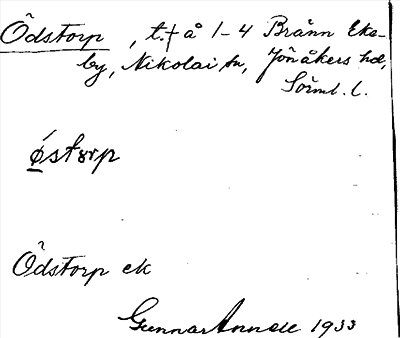 Ödstorp, t. å 1-4 Brånn Eks-
by, Nikolai sn, Jönåkers hd,
Sörml. l.
östorp
Ödstorp ek
Gunnar 1933